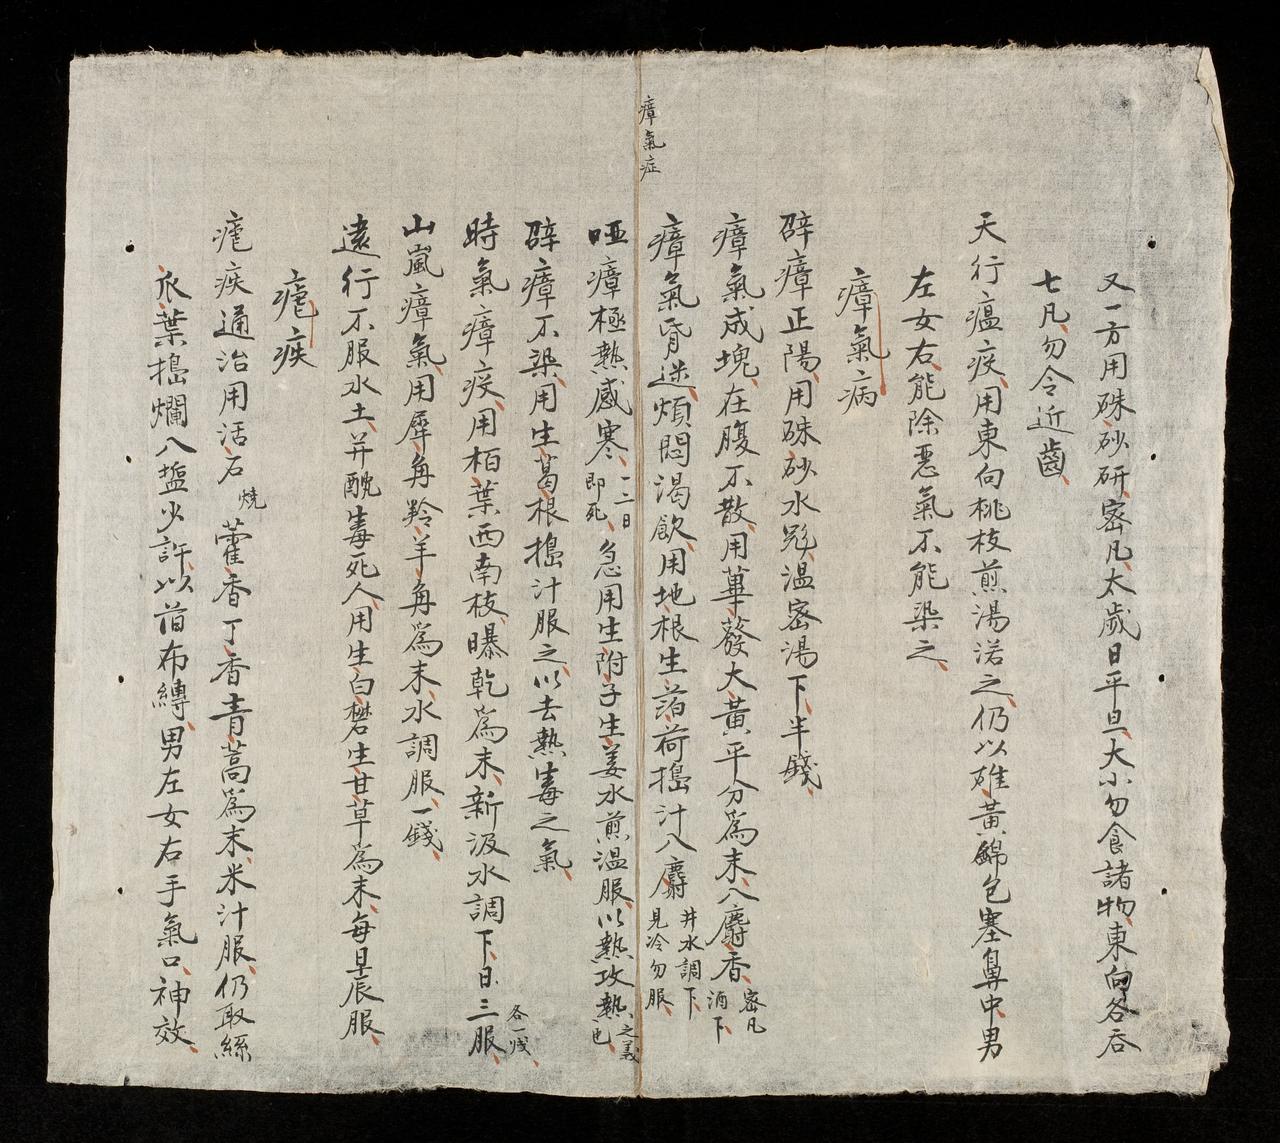 又一方用硃砂研密凡太歲日平旦大小勿食諸物東向各吞
七凡勿令近齒
天行瘟疫用東向桃枝煎湯浴之仍以雄黃錦包塞鼻中男
左女右能除惡氣不能染之
瘴氣病
辟瘴正陽用硃砂水飛溫密湯下半錢
瘴氣成塊在腹不散用蓽蕟大黃平分為末入麝香密凡酒下
瘴氣昏迷煩悶渴飲用地根生萡荷搗汁入麝井水調下見冷勿服
瘴氣症
啞瘴極熱感寒一二日即死急用生附子生姜水煎溫服以熱攻熱之義也
辟瘴不染用生葛根搗汁服之以去熱毒之氣
時氣瘴疫用栢葉西南枝曝乾為末新汲水調下日三服各一戔
山嵐瘴氣用犀角羚羊角為末水調服一錢
遠行不服水土并酖毒死人用生白礬生甘草為末每早辰服
瘧疾
瘧疾通治用活石燒藿香丁香青蒿為末米汁服仍取絲
瓜葉搗爛入塩少許以萡布縛男左女右手氣口神效